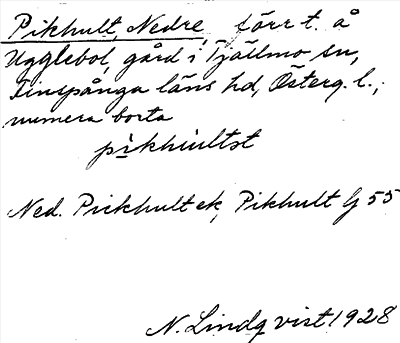 Pikhult, Nedre, förr t. å
Ugglebol, gård i Tjällmo sn,
Finspånga läns hd, Österg. l.,
numera borta
pìkhultst
Ned. Pickhult ek, Pikhult G 55
N. Lindqvist 1928